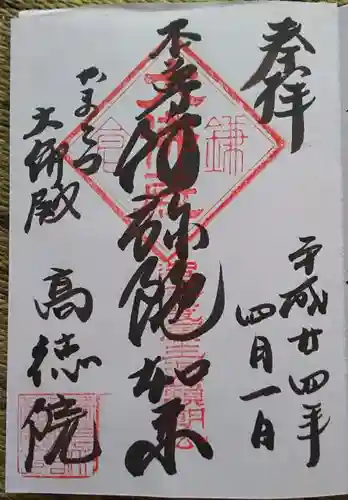 奉拝
平成廿四年
四月一日
本尊阿弥陀如来
鎌倉
かまくら
大佛殿
高徳院